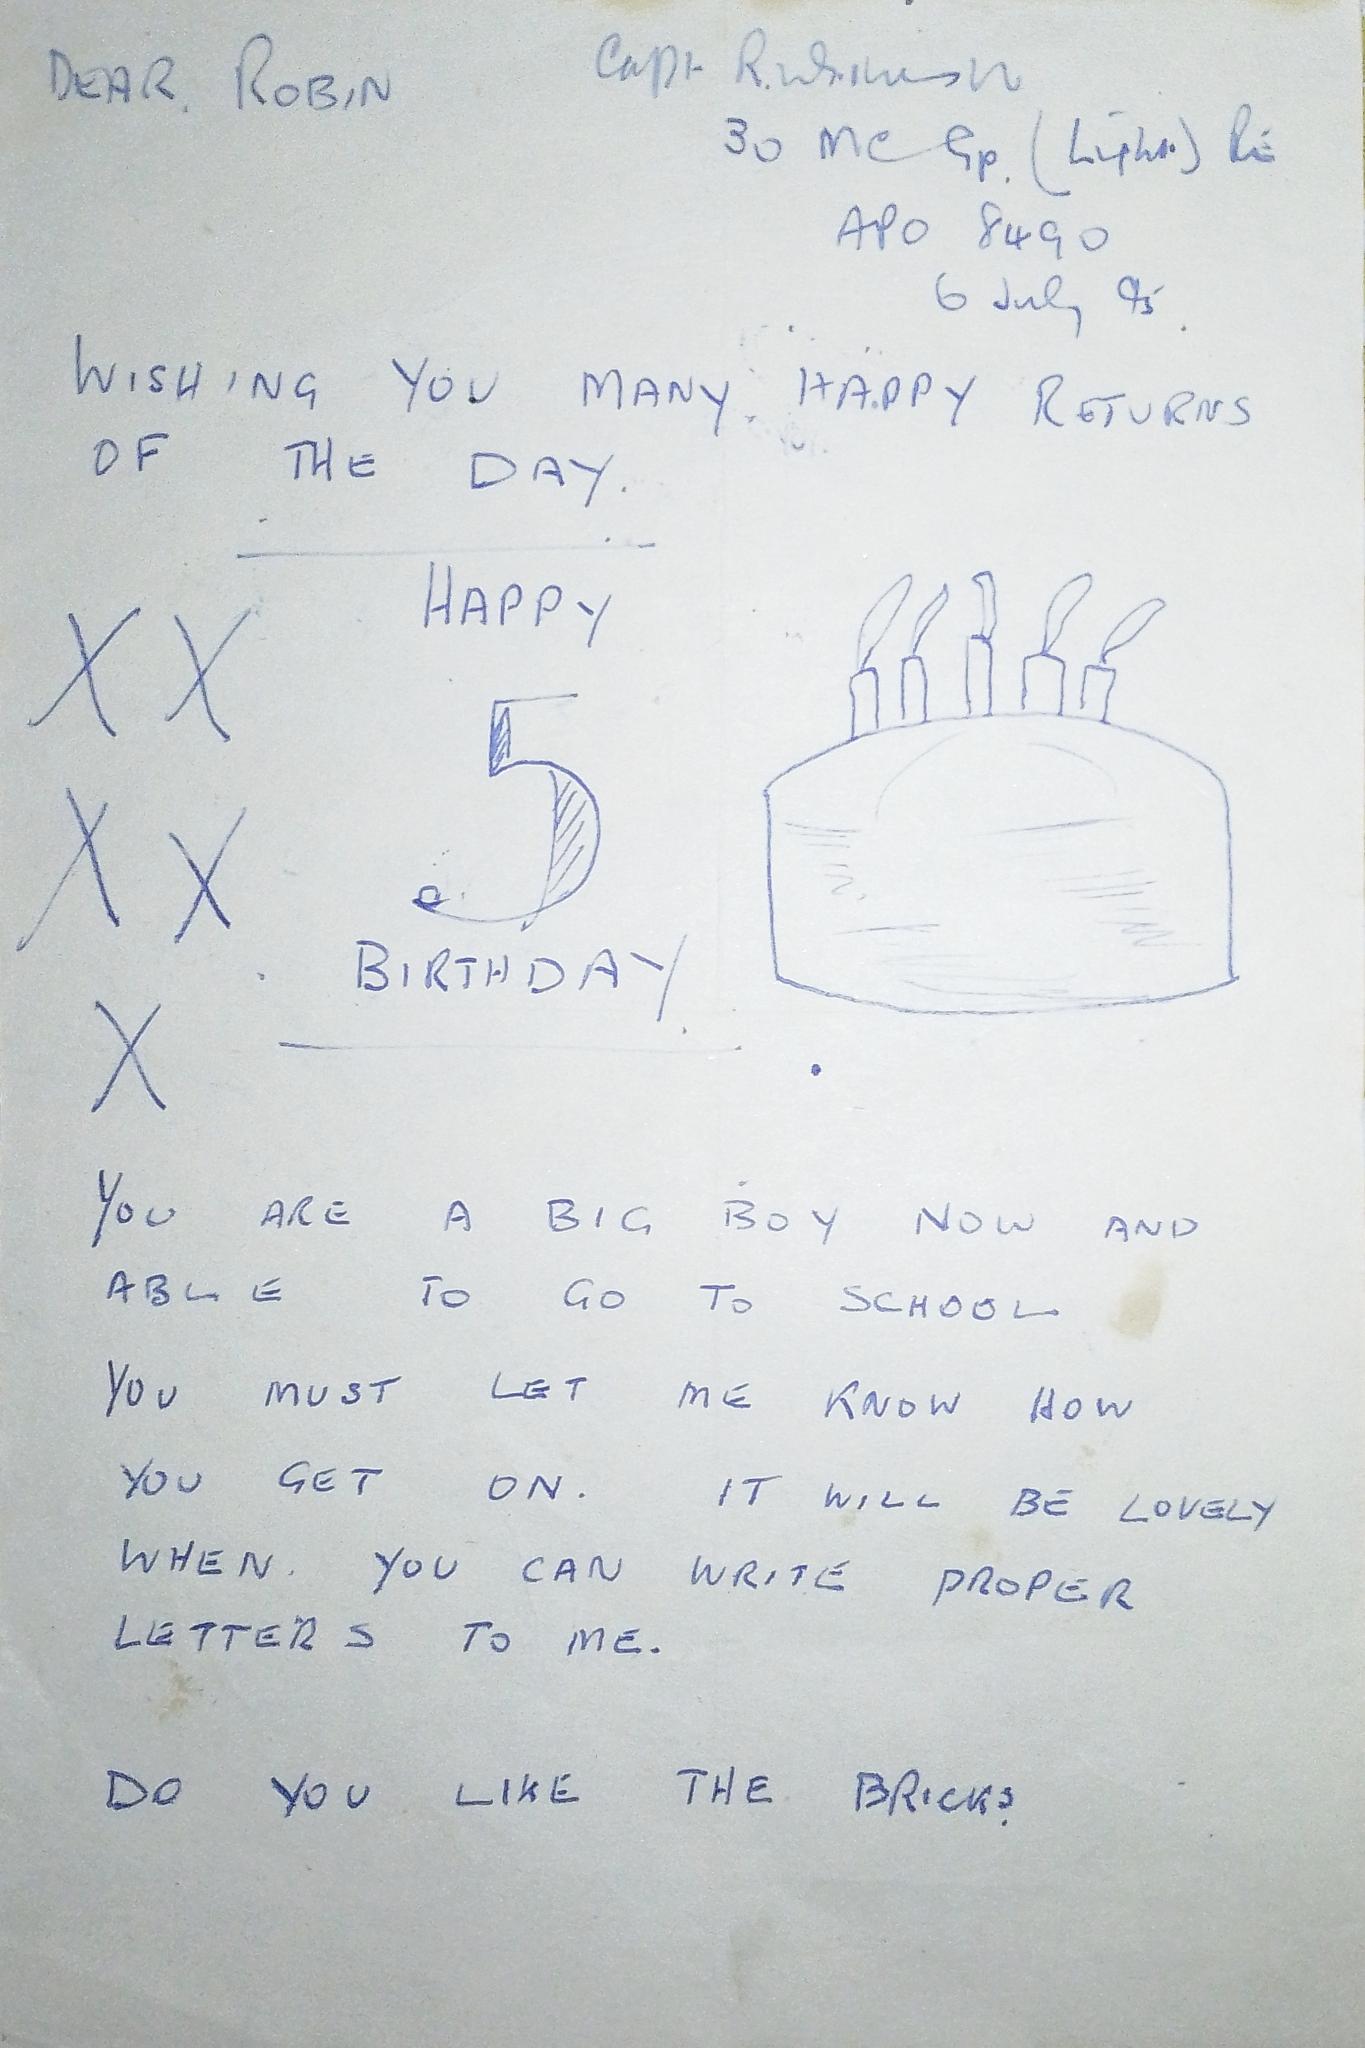 DEAR. ROBIN
Capt R.
30 MC Gp. (Light) RE
APO 8490
6 July 45.
WISHING YOU MANY HAPPY RETURNS
OF THE DAY.
HAPPY
5
BIRTHDAY
X X
X X
X
YOU ARE A BIG BOY NOW AND
ABLE TO GO TO SCHOOL
YOU MUST LET ME KNOW HOW
YOU GET ON. IT WILL BE LOVELY
WHEN. YOU CAN WRITE PROPER
LETTERS TO ME.
DO YOU LIKE THE BRICKS